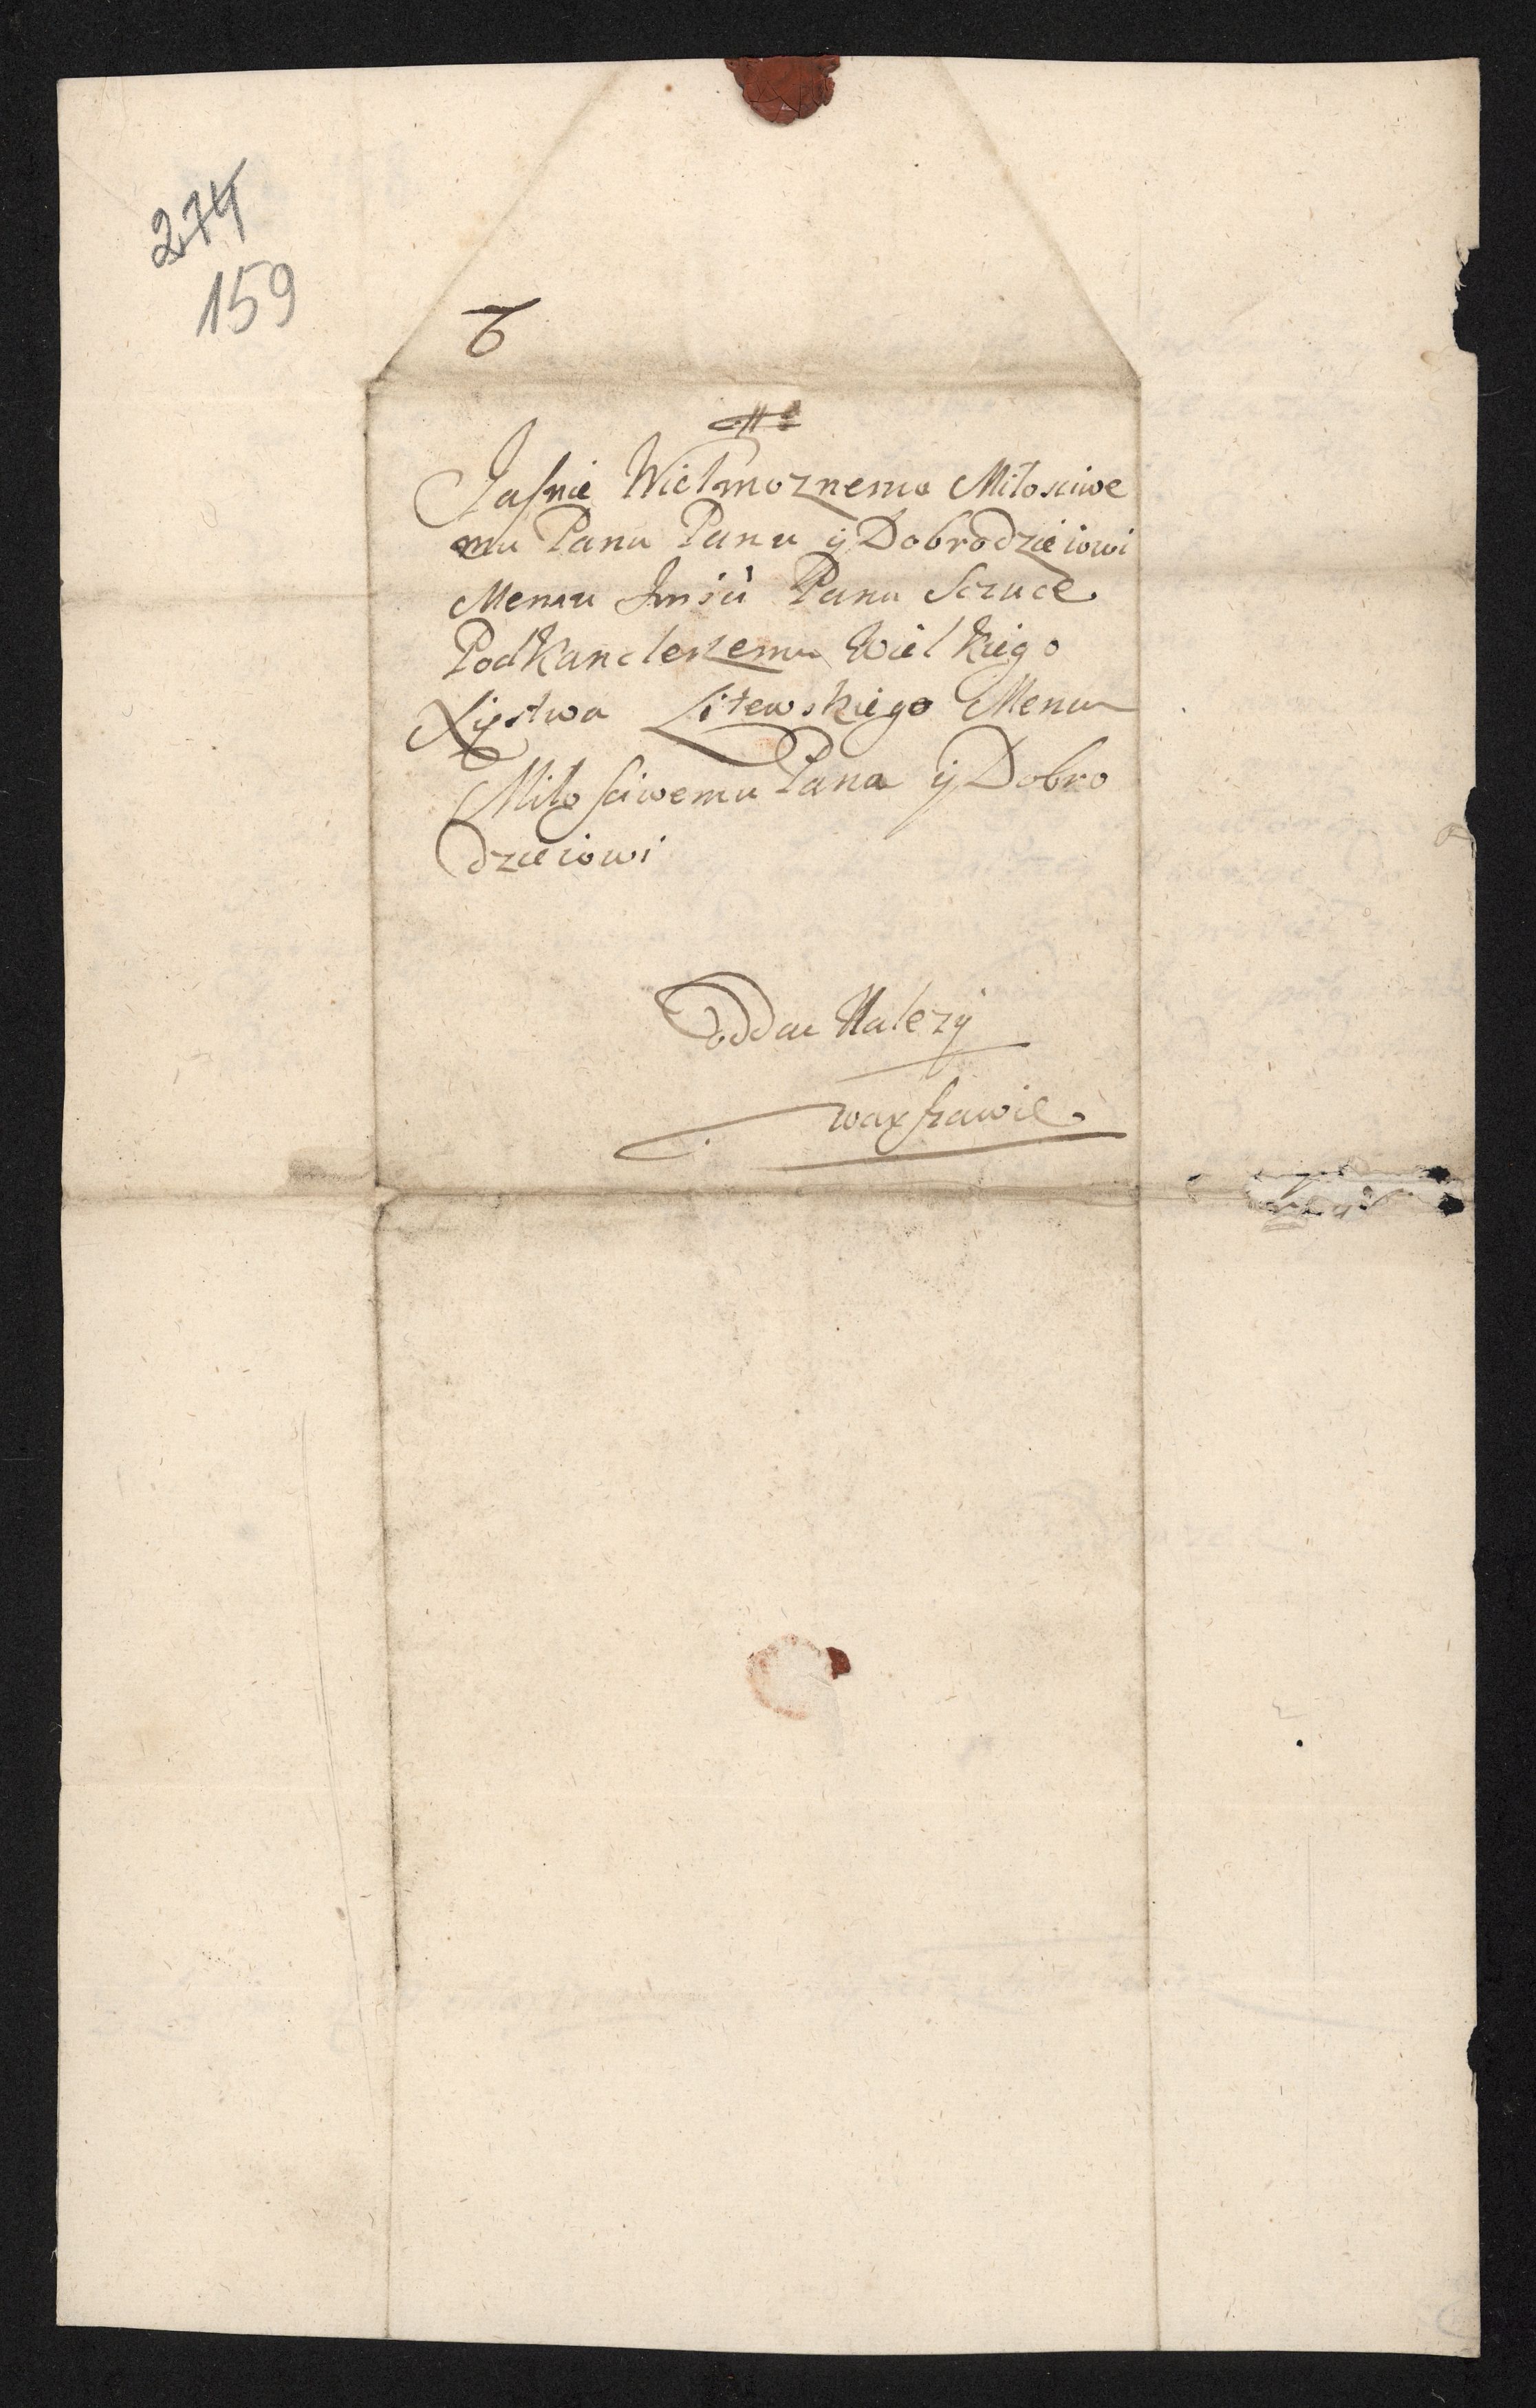 274
159
6
Jaſnie Wielmoznemu Milosciwe
mu Panu Panu ÿ Dobrodzieiowi
Memu Jmsci Panu Sczuce
PodKanclerzemu Wielkiego
Xięstwa Litewskiego Memu
Miloſciwemu Panu ÿ Dobro
dzieiowi
oddac Nalezÿ
warſzawie